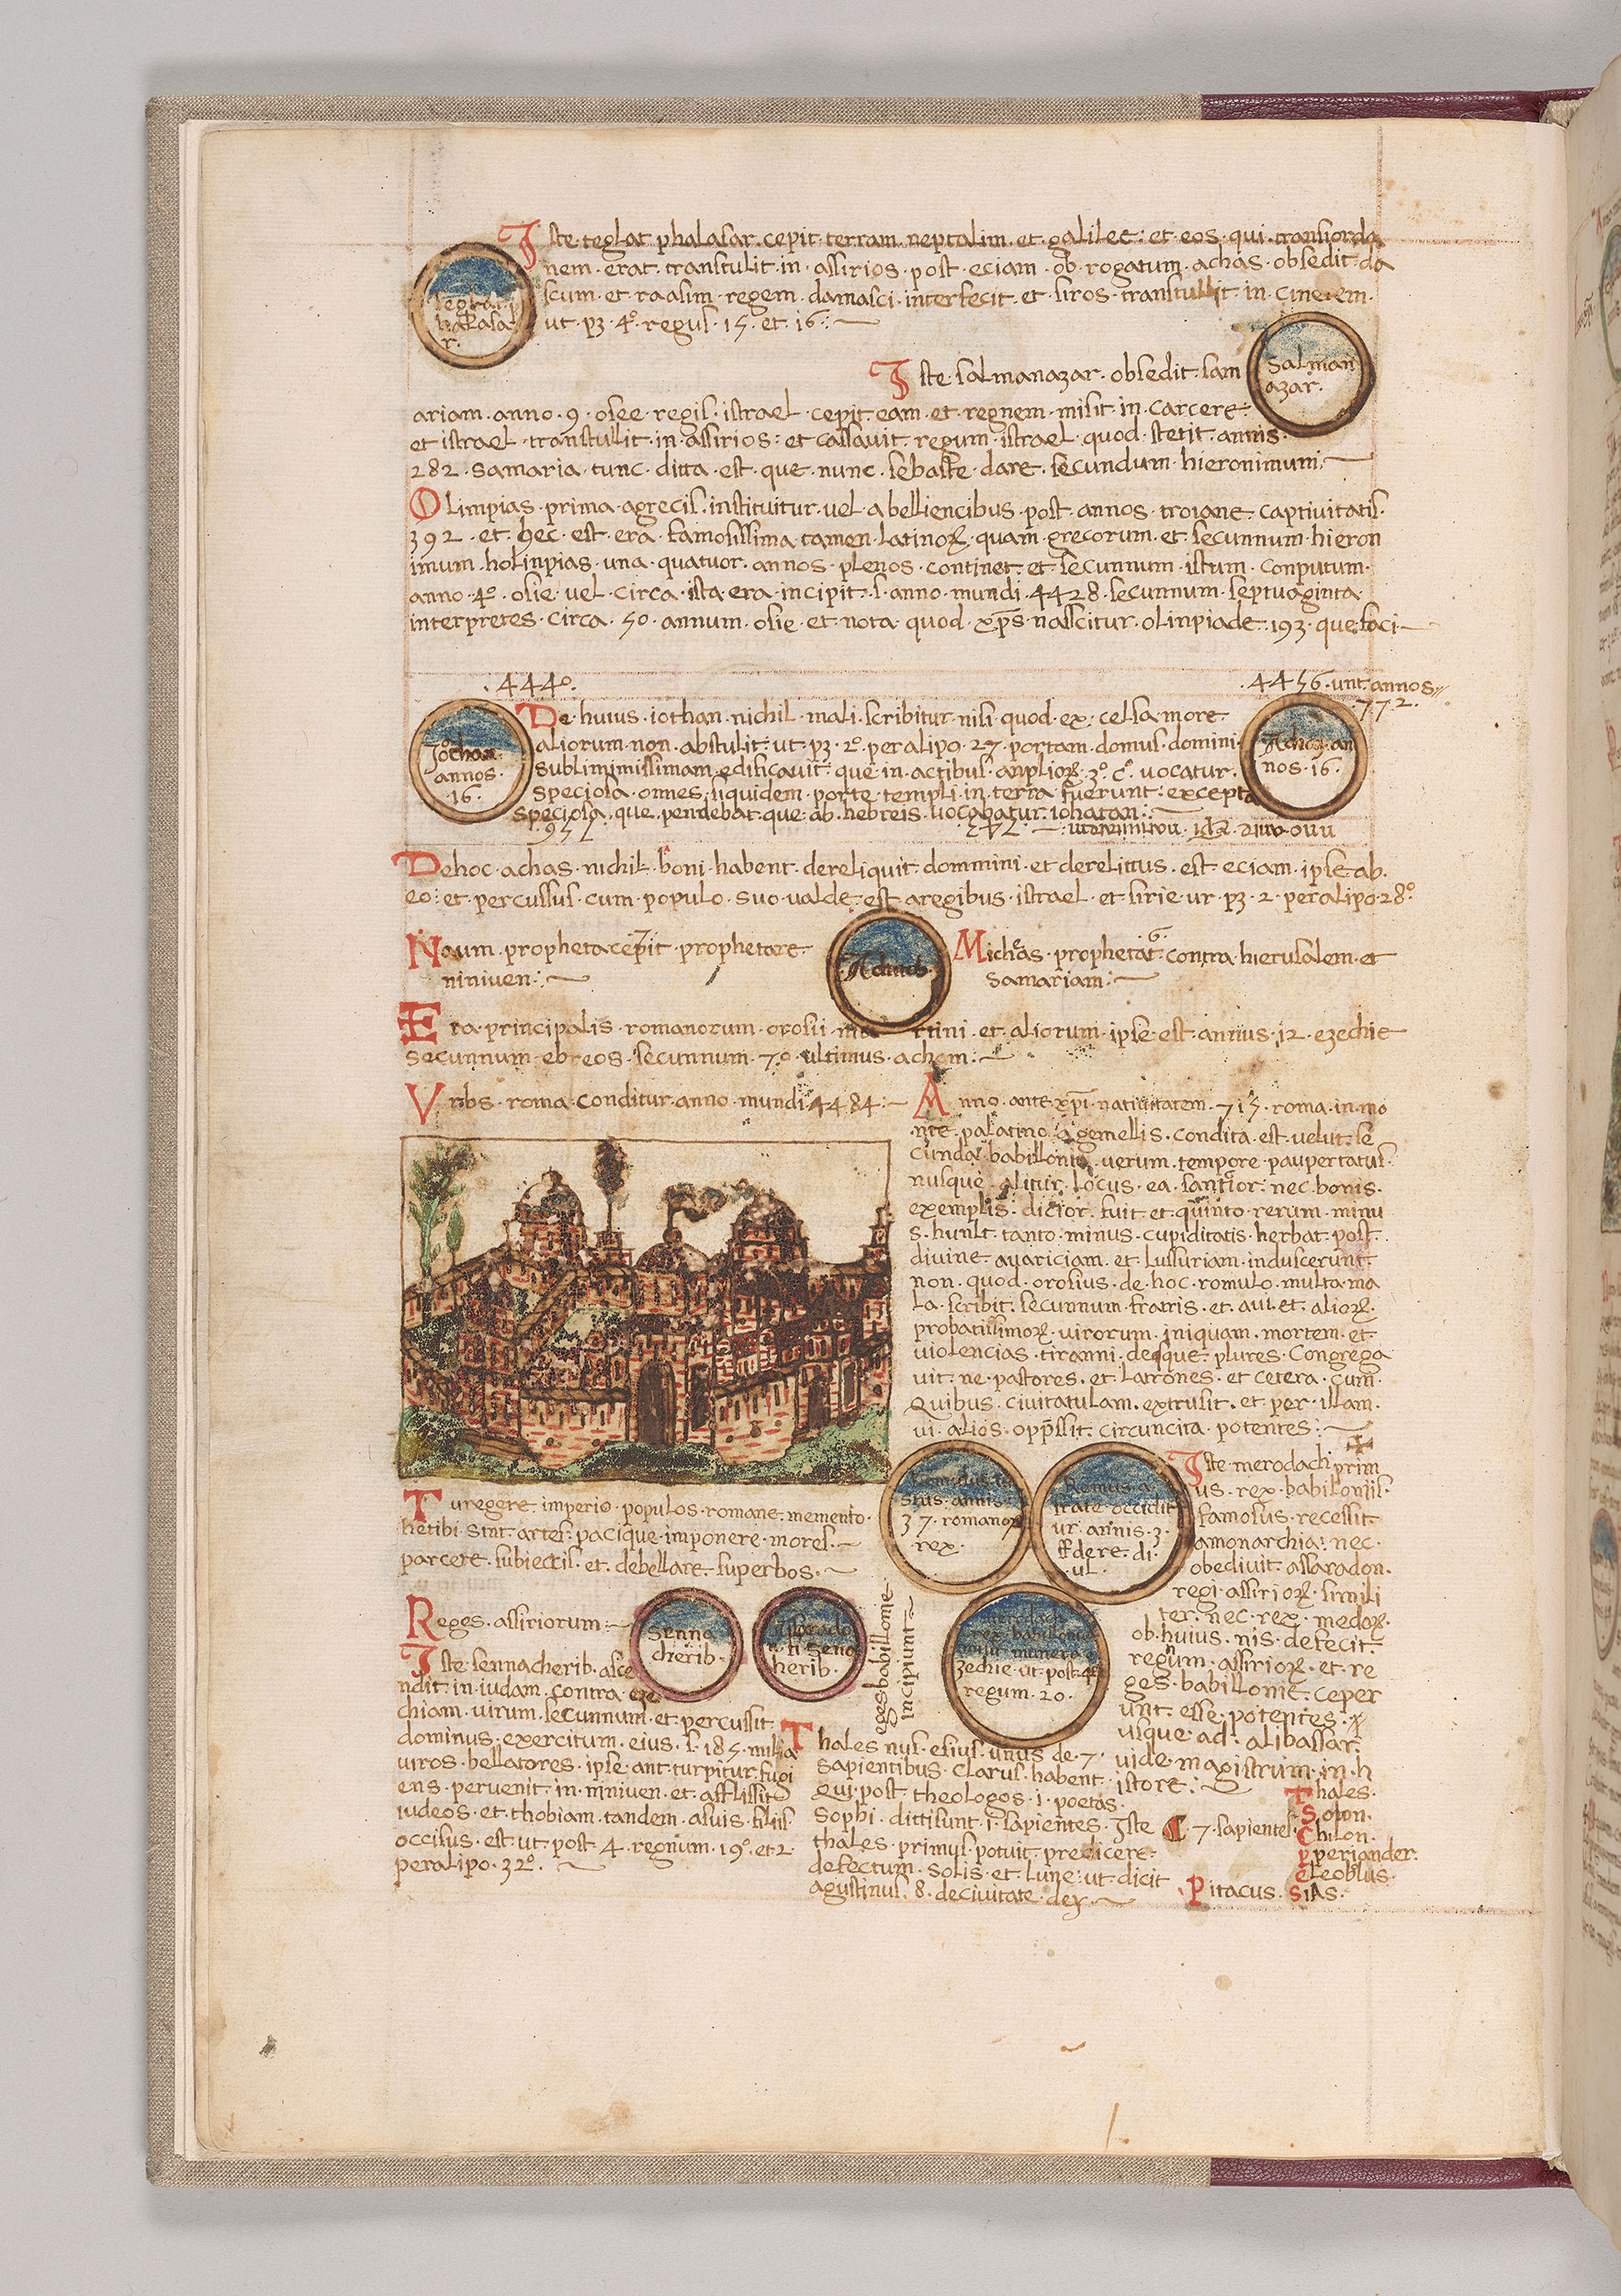 Iste teglat phalasar cepit terram neptalim et galilee: et eos qui transiorda
nem erat transtulit in assirios post eciam ob rogatum achas obsedit da
scum et raasim regem damasci interfecit et siros transtullit in cirenem
ut pȝ 4º regus 15 et 16
teglat p
halasa
r.
Iste salmanazar obsedit sam
salman
azar.
ariam anno 9 osee regis istrael cepit eam et regnem misit in carcere
et istrael transtulit in assirios: et cassavit regum istrael quod stetit annis
282 samaria tunc dicta est que nunc sebaste dare secundum hieronimum
Olimpias prima agrecis instituitur vel abelliencibus post annos troiane captivitatis
392 et hec est era famosissima tamen latinoꝝ quam grecorum et secunnum hieron
imum holinpias una quatuor annos plenos continet et secunnum istum conputum
anno 4º osie vel circa ista era incipit s anno mundi 4428 secunnum septuaginta
interpretes circa 50 annum osie et nota quod xp̄s nasscitur olinpiade 193 que faci
444º.
4456 unt annos
772.
Iothan
annos
16.
De huius iothan nichil mali scribitur nisi quod ex celsa more
aliorum non abstulit ut pȝ 2º peralipo 27 portam domus domini
sublimimissimam edificavit que in actibus anplioꝝ 3º cº vocatur
speciosa omnes siquidem porte templi in terra fuerunt excepta
speciosa que pendebat que ab hebreis vocabatur iohatan
Achaz an
nos 16.
Dehoc achas nichil boni habent dereliquit dommini et derelittus est eciam ipse ab
eo: et percussus cum populo suo valde est aregibus istrael et sirie ur pȝ 2 peralipo 28º
Noum propheta cepit prophetare
niniven
Micheas prophetat contra hierusalem et
samariam
Era principalis romanorum orosii martini et aliorum ipse est annus 12 ezechie
secunnum ebreos secunnum 70 ultimus achem
Vrbs roma conditur anno mundi 4484
Anno ante xp̄i nativitatem 715 roma in mo
nte palatino agemellis condita est velut se
cunda babillonia verum tempore paupertatus
nusque alitur locus ea sanctior nec bonis
exemplis dicior fuit et quinto rerum minu
s hunlt tanto minus cupiditatis herbat post
divine avariciam et lussuriam induscerunt
non quod orosius de hoc romulo multa ma
la scribit secunnum fratris et avi et alioꝝ
probatissimoꝝ virorum iniquam mortem et
violencias tiranni desque plures congrega
vit ne pastores et latrones et cetera cum
quibus civitatulam extrusit et per illam
vi alios opp̄ssit circuncita potentes
Turegere imperio populos romane memento
hetibi sint artes pacique imponere mores
parcere subiectis et debellare superbos
annis
37 romanoꝝ
rex
Remus a
frate occidit
ur annis 3.
Iste merodach prim
us rex babiloniis
famosus recessit
amonarchia: nec
obedivit assaradon
regi assirioꝝ simili
ter nec rex medoꝝ
ob huius nis defecit
regnum assirioꝝ et re
ges babillonie ceper
unt esse potentes
usque ad alibassar
vide magistrum in h
istore
Reges assiriorum
Senna
cherib.
Assarado
n fi sena
herib.
Iste sennacherib asce
ndit in iudam contra eze
chiam virum secunnum et percussit
dominus exercitum eius s 185 milia
viros bellatores ipse ant turpitur fugi
ens pervenit in niniven et afflissit
iudeos et thobiam tandem asuis filiis
occisus est ut post 4 regnum 19º et 2
peralipo 32º
eges babillonie
incipiunt
merodach
rex babillonie
misit munera e
zechie ut post 4
regum 20.
Thales unus de 7
sapientibus clarus habent
qui post theologos i poetas
sophi dittisunt i sapientes Iste
thales primus potuit predicere
defectum solis et lune ut dicit
agustinus 8 decivitate dei
7 sapientes
Thales
Solon
Chilon
pperiander
cleoblus
Pitacus
Sias